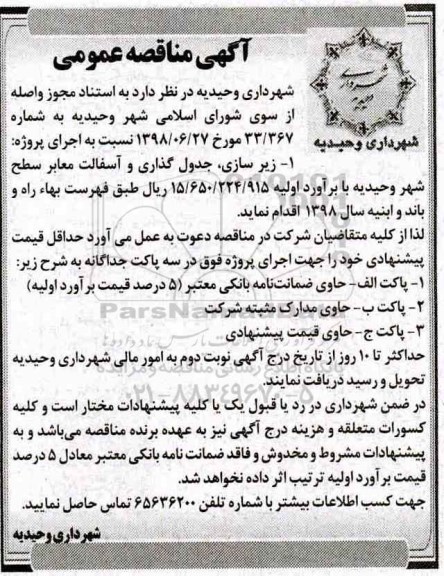 آگهی مناقصه عمومی
شهرداری وحیدیه
شهرداری وحیدیه در نظر دارد به استناد مجوز واصله
از سوی شورای اسلامی شهر وحیدیه به شماره
۳۳/۳۶۷ مورخ ۱۳۹۸/۰۶/۲۷ نسبت به اجرای پروژه:
۱- زیر سازی، جدول گذاری و آسفالت معابر سطح
شهر وحیدیه با برآورد اولیه ۱۵/۶۵۰/۲۲۴/۹۱۵ ریال طبق فهرست بهاء راه و
باند و ابنیه سال ۱۳۹۸ اقدام نماید.
لذا از کلیه متقاضیان شرکت در مناقصه دعوت به عمل می آورد حداقل قیمت
پیشنهادی خود را جهت اجرای پروژه فوق در سه پاکت جداگانه به شرح زیر:
۱- پاکت الف- حاوی ضمانت‌نامه بانکی معتبر (۵ درصد قیمت برآورد اولیه)
۲- پاکت ب- حاوی مدارک مثبته شرکت
۳- پاکت ج- حاوی قیمت پیشنهادی
حداکثر تا ۱۰ روز از تاریخ درج آگهی نوبت دوم به امور مالی شهرداری وحیدیه
تحویل و رسید دریافت نمایند.
در ضمن شهرداری در رد یا قبول یک یا کلیه پیشنهادات مختار است و کلیه
کسورات متعلقه و هزینه درج آگهی نیز به عهده برنده مناقصه می‌باشد و به
پیشنهادات مشروط و مخدوش و فاقد ضمانت نامه بانکی معتبر معادل ۵ درصد
قیمت برآورد اولیه ترتیب اثر داده نخواهد شد.
جهت کسب اطلاعات بیشتر با شماره تلفن ۶۵۶۳۶۲۰۰ تماس حاصل نمایید.
شهرداری وحیدیه